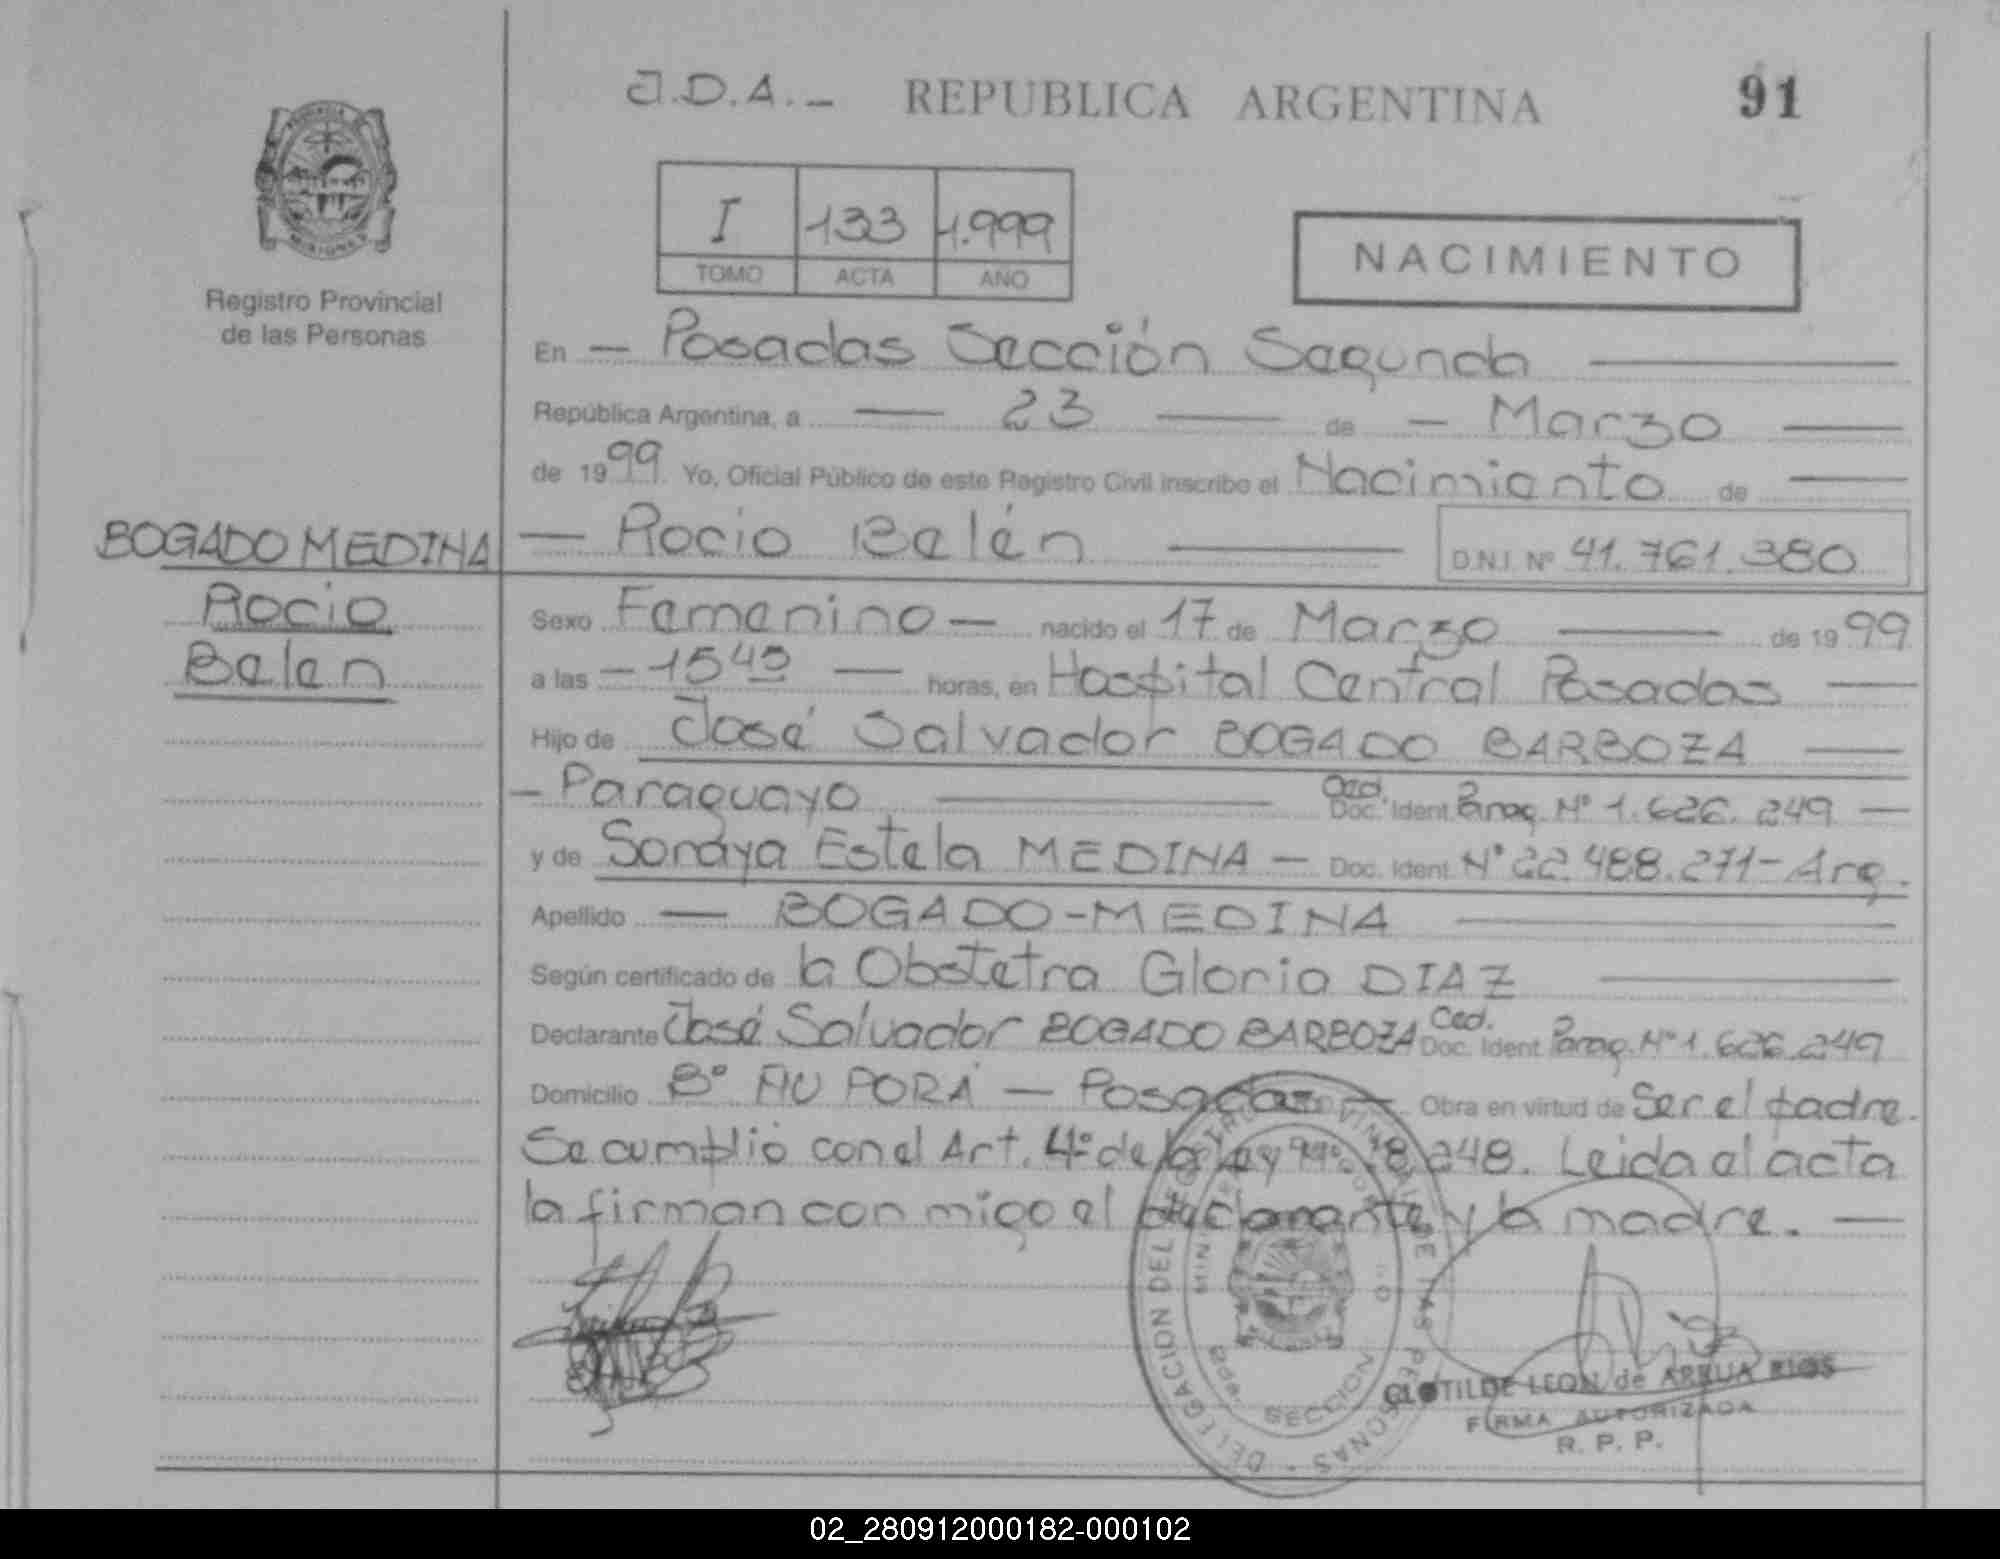 J.D.A.- REPUBLICA ARGENTINA 91
I 133 1.999
TOMO ACTA AÑO
NACIMIENTO
PROVINCIA
MISIONES
Registro Provincial
de las Personas
En - Posadas Sección Segunda
República Argentina, a 23 de - Marzo
de 1999. Yo, Oficial Público de este Registro Civil inscribo el Nacimiento de
BOGADO MEDINA
Rocio
Belen
- Rocio Belén D.N.I. Nº 41.761.380
Sexo Femenino - nacido el 17 de Marzo de 1999
a las - 15 45 - horas, en Hospital Central Posadas
Hijo de José Salvador BOGADO BARBOZA
- Paraguayo Ced. Doc. Ident. Parag. Nº 1.626.249 -
y de Soraya Estela MEDINA - Doc. Ident. Nº 22.488.271- Arg.
Apellido - BOGADO-MEDINA
Según certificado de la Obstetra Gloria DIAZ
Declarante José Salvador BOGADO BARBOZA Ced. Doc. Ident. Parag. Nº 1.626.249
Domicilio Bº ÑU PORÁ - Posadas - Obra en virtud de Ser el padre.
Se cumplió con el Art. 4º de la Ley Nº 18.248. Leida el acta
la firman con migo el declarante y la madre. -
DELEGACION DEL REGISTRO PROVINCIAL DE LAS PERSONAS
SECCION
CLOTILDE LEON de ARRUA RIOS
FIRMA AUTORIZADA
R. P. P.
02_280912000182-000102